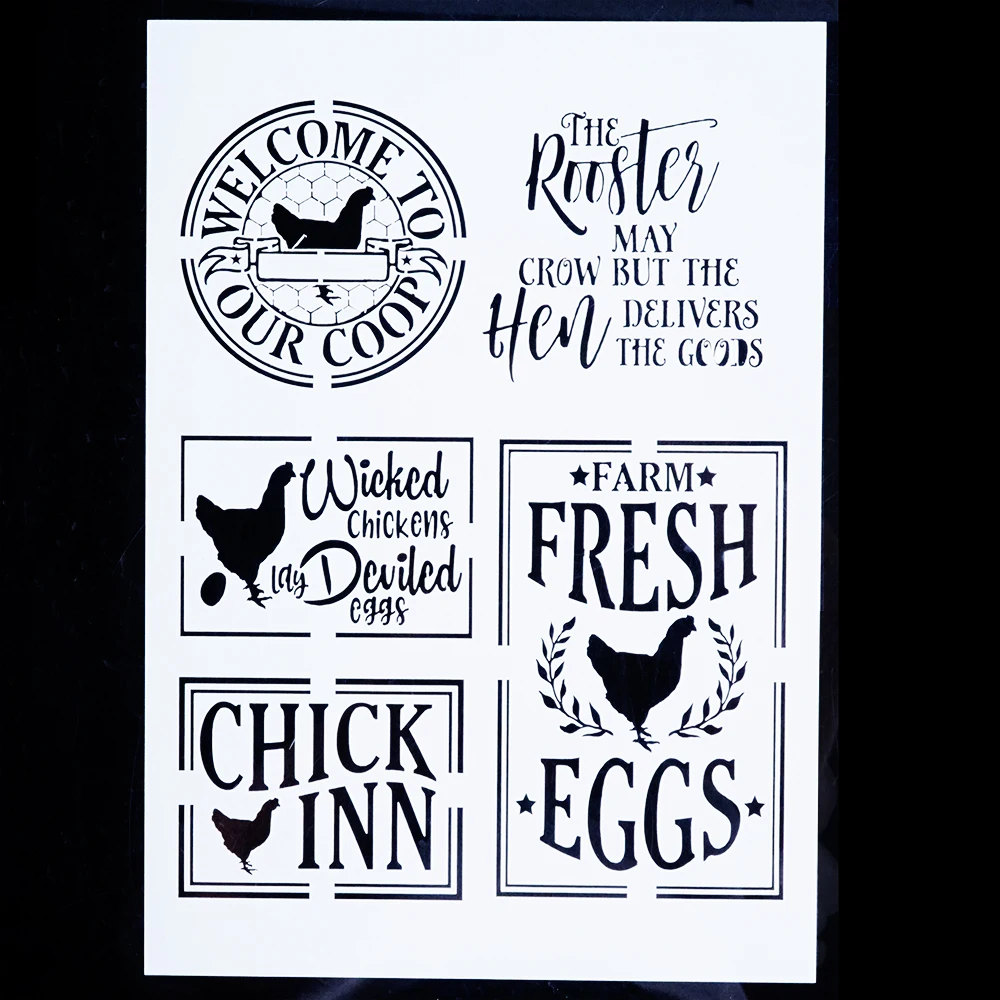 WELCOME TO
OUR COOP
THE
Rooster
MAY
CROW BUT THE
Hen DELIVERS
THE GOODS
Wicked
Chickens
lay Deviled
eggs
FARM
FRESH
EGGS
CHICK
INN